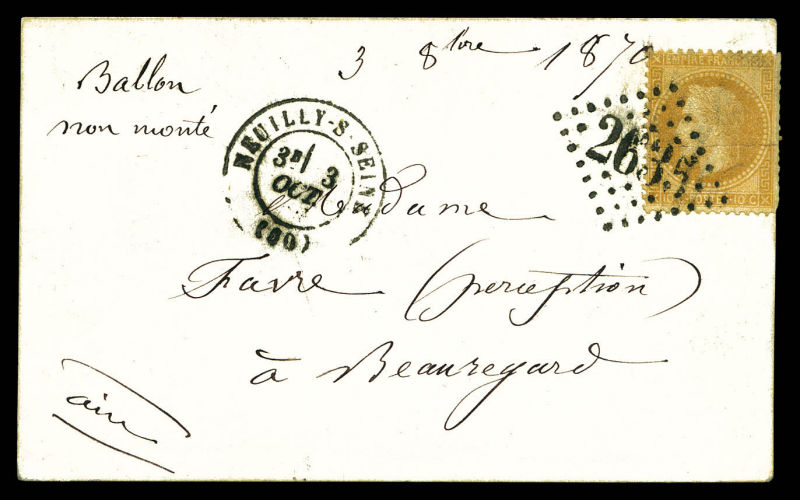 3 8bre 1870
Ballon
non monté
NEUILLY-S-SEINE
3E/ 3
OCT
(60)
EMPIRE FRANC
2656
10 C POSTES 10 C
Madame
Favre (perception)
à Beauregard
ain